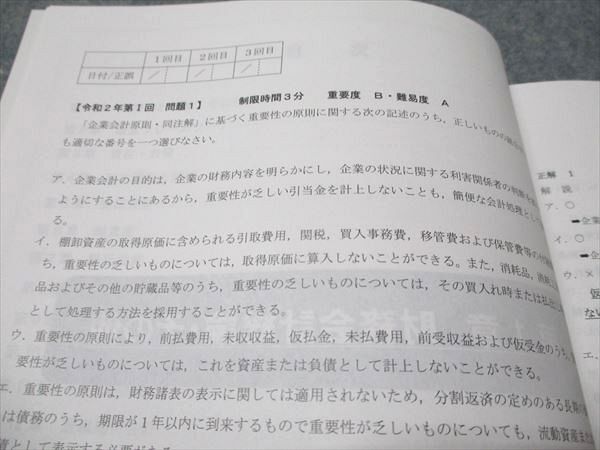 1回目 2回目 3回目
日付/正誤 / / /
【令和2年第Ⅰ回 問題1】 制限時間3分 重要度 B・難易度 A
「企業会計原則・同注解」に基づく重要性の原則に関する次の記述のうち，正しいものの
も適切な番号を一つ選びなさい。
ア．企業会計の目的は，企業の財務内容を明らかにし，企業の状況に関する利害関係者の判断を
ようにすることにあるから，重要性が乏しい引当金を計上しないことも，簡便な会計処理とし
る。
イ．棚卸資産の取得原価に含められる引取費用，関税，買入事務費，移管費および保管費等の付
ち，重要性の乏しいものについては，取得原価に算入しないことができる。また，消耗品，消耗
品およびその他の貯蔵品等のうち，重要性の乏しいものについては，その買入れ時または払出
として処理する方法を採用することができる。
ウ．重要性の原則により，前払費用，未収収益，仮払金，未払費用，前受収益および仮受金のうち，
要性の乏しいものについては，これを資産または負債として計上しないことができる。
エ．重要性の原則は，財務諸表の表示に関しては適用されないため，分割返済の定めのある長期
は債務のうち，期限が1年以内に到来するもので重要性が乏しいものについても，流動資産また
債として表示する必要がある
正解 1
解説
ア．○
➡企
イ．○
➡企
ウ．×
仮
ない